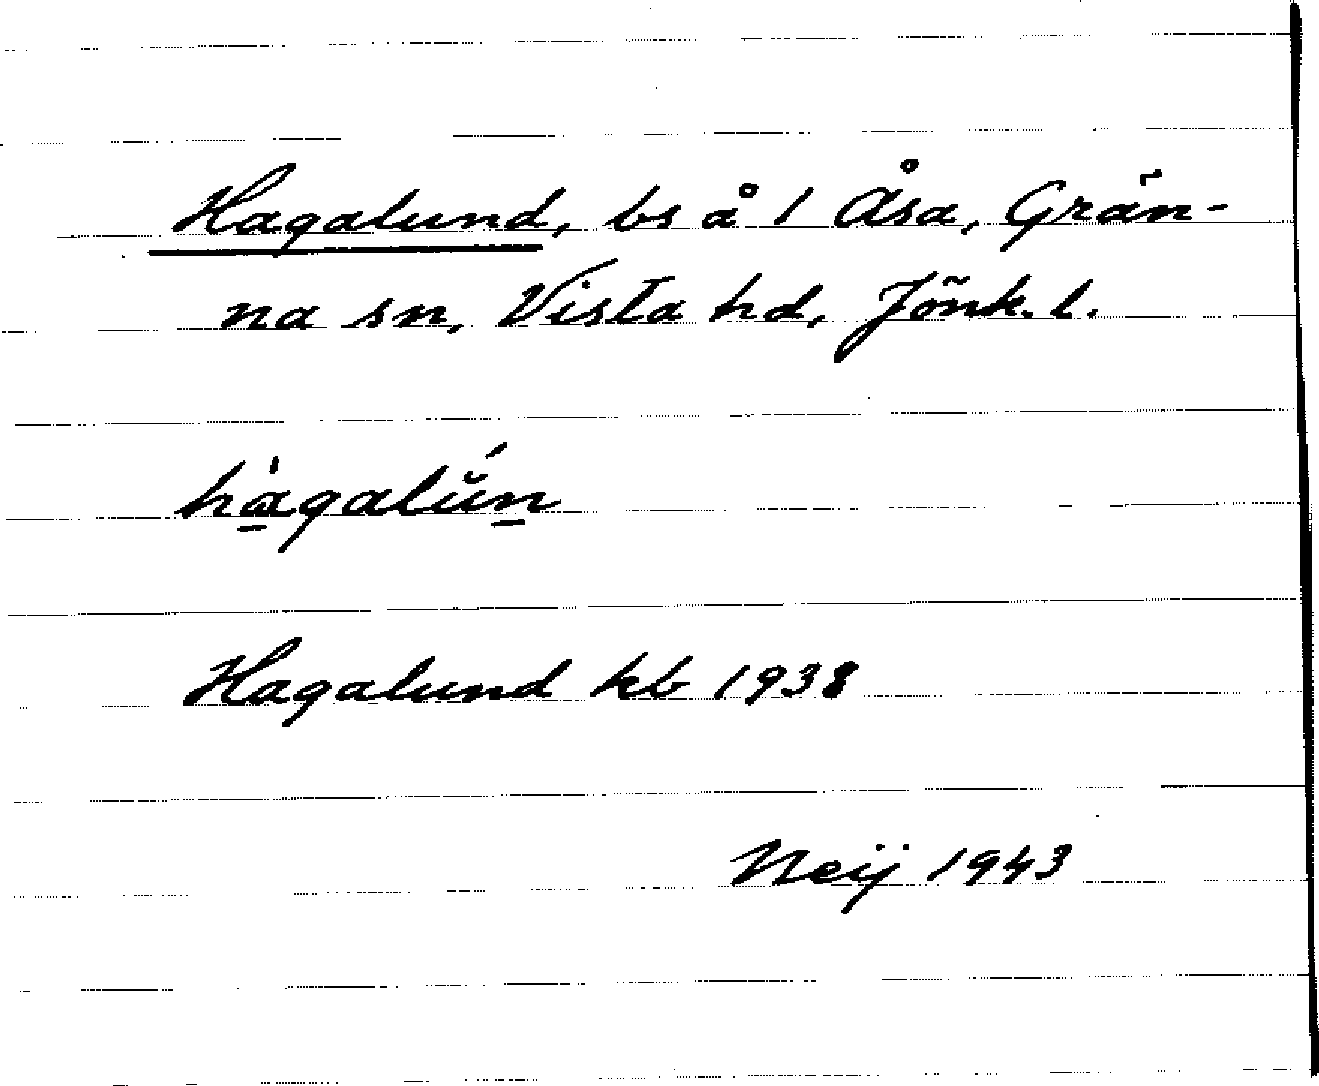 Hagalund, bs å 1 Åsa, Grän-
na sn, Vista hd, Jönk. l.
hàgalǔ́n
Hagalund kb 1938
Neij 1943